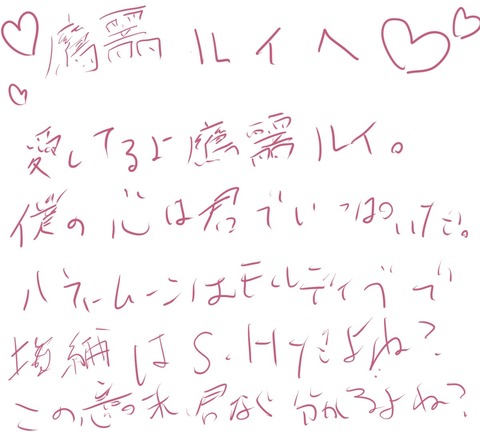 ルイへ
愛してるよ ルイ。
僕の心は君でいっぱいだ。
ハネムーンはモルディブで
はS.Hだよね?
この意味君なら分かるよね?